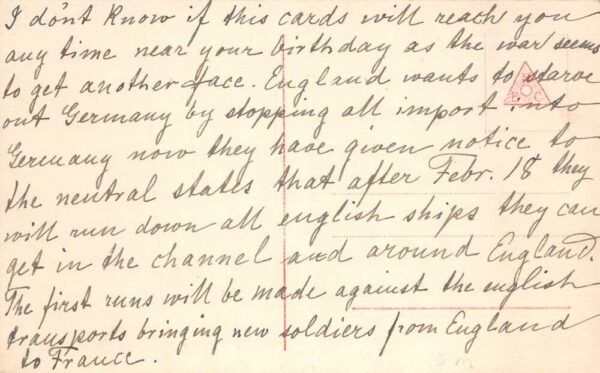 I don't know if this cards will reach you
any time near your birthday as the war seems
to get another face. England wants to starve
out Germany by stopping all import into
Germany now they have given notice to
the neutral states that after Febr. 18 they
will run down all english ships they can
get in the channel and around England.
The first runs will be made against the english
transports bringing new soldiers from England
to France.